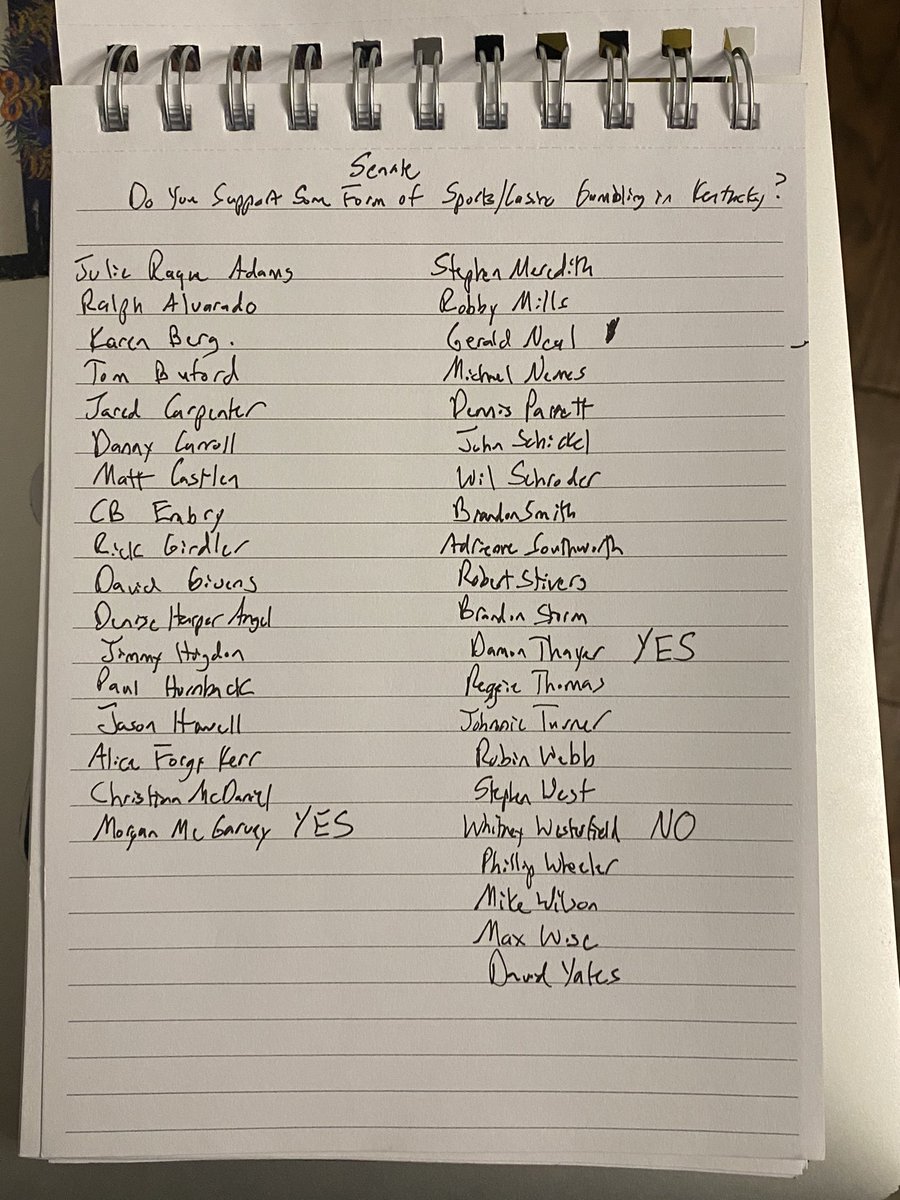 Senate
Do You Support Some Form of Sports/Casino Gambling in Kentucky?
Julie Raque Adams
Ralph Alvarado
Karen Berg.
Tom Buford
Jared Carpenter
Danny Carroll
Matt Castlen
CB Embry
Rick Girdler
David Givens
Denise Harper Angel
Jimmy Higdon
Paul Hornback
Jason Howell
Alice Forgy Kerr
Christian McDaniel
Morgan McGarvey YES
Stephen Meredith
Robby Mills
Gerald Neal
Michael Nemes
Dennis Parrett
John Schickel
Wil Schroder
Brandon Smith
Adrienne Southworth
Robert Stivers
Brandon Storm
Damon Thayer YES
Reggie Thomas
Johnnie Turner
Robin Webb
Stephen West
Whitney Westerfield NO
Phillip Wheeler
Mike Wilson
Max Wise
David Yates